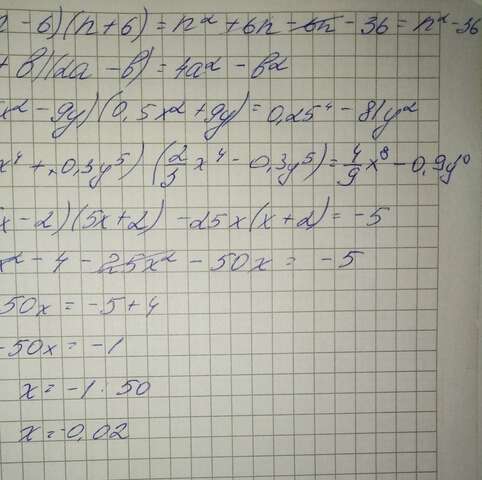 - 6)(n+6) = n² + 6n - 6n - 36 = n² - 36
+ b)(2a - b) = 4a² - b²
x² - 9y)(0,5x² + 9y) = 0,25⁴ - 81y²
x⁴ + 0,3y⁵)(2/3 x⁴ - 0,3y⁵) = 4/9 x⁸ - 0,9y
x - 2)(5x + 2) - 25x(x + 2) = -5
x² - 4 - 25x² - 50x = -5
50x = -5 + 4
-50x = -1
x = -1 : 50
x = 0,02